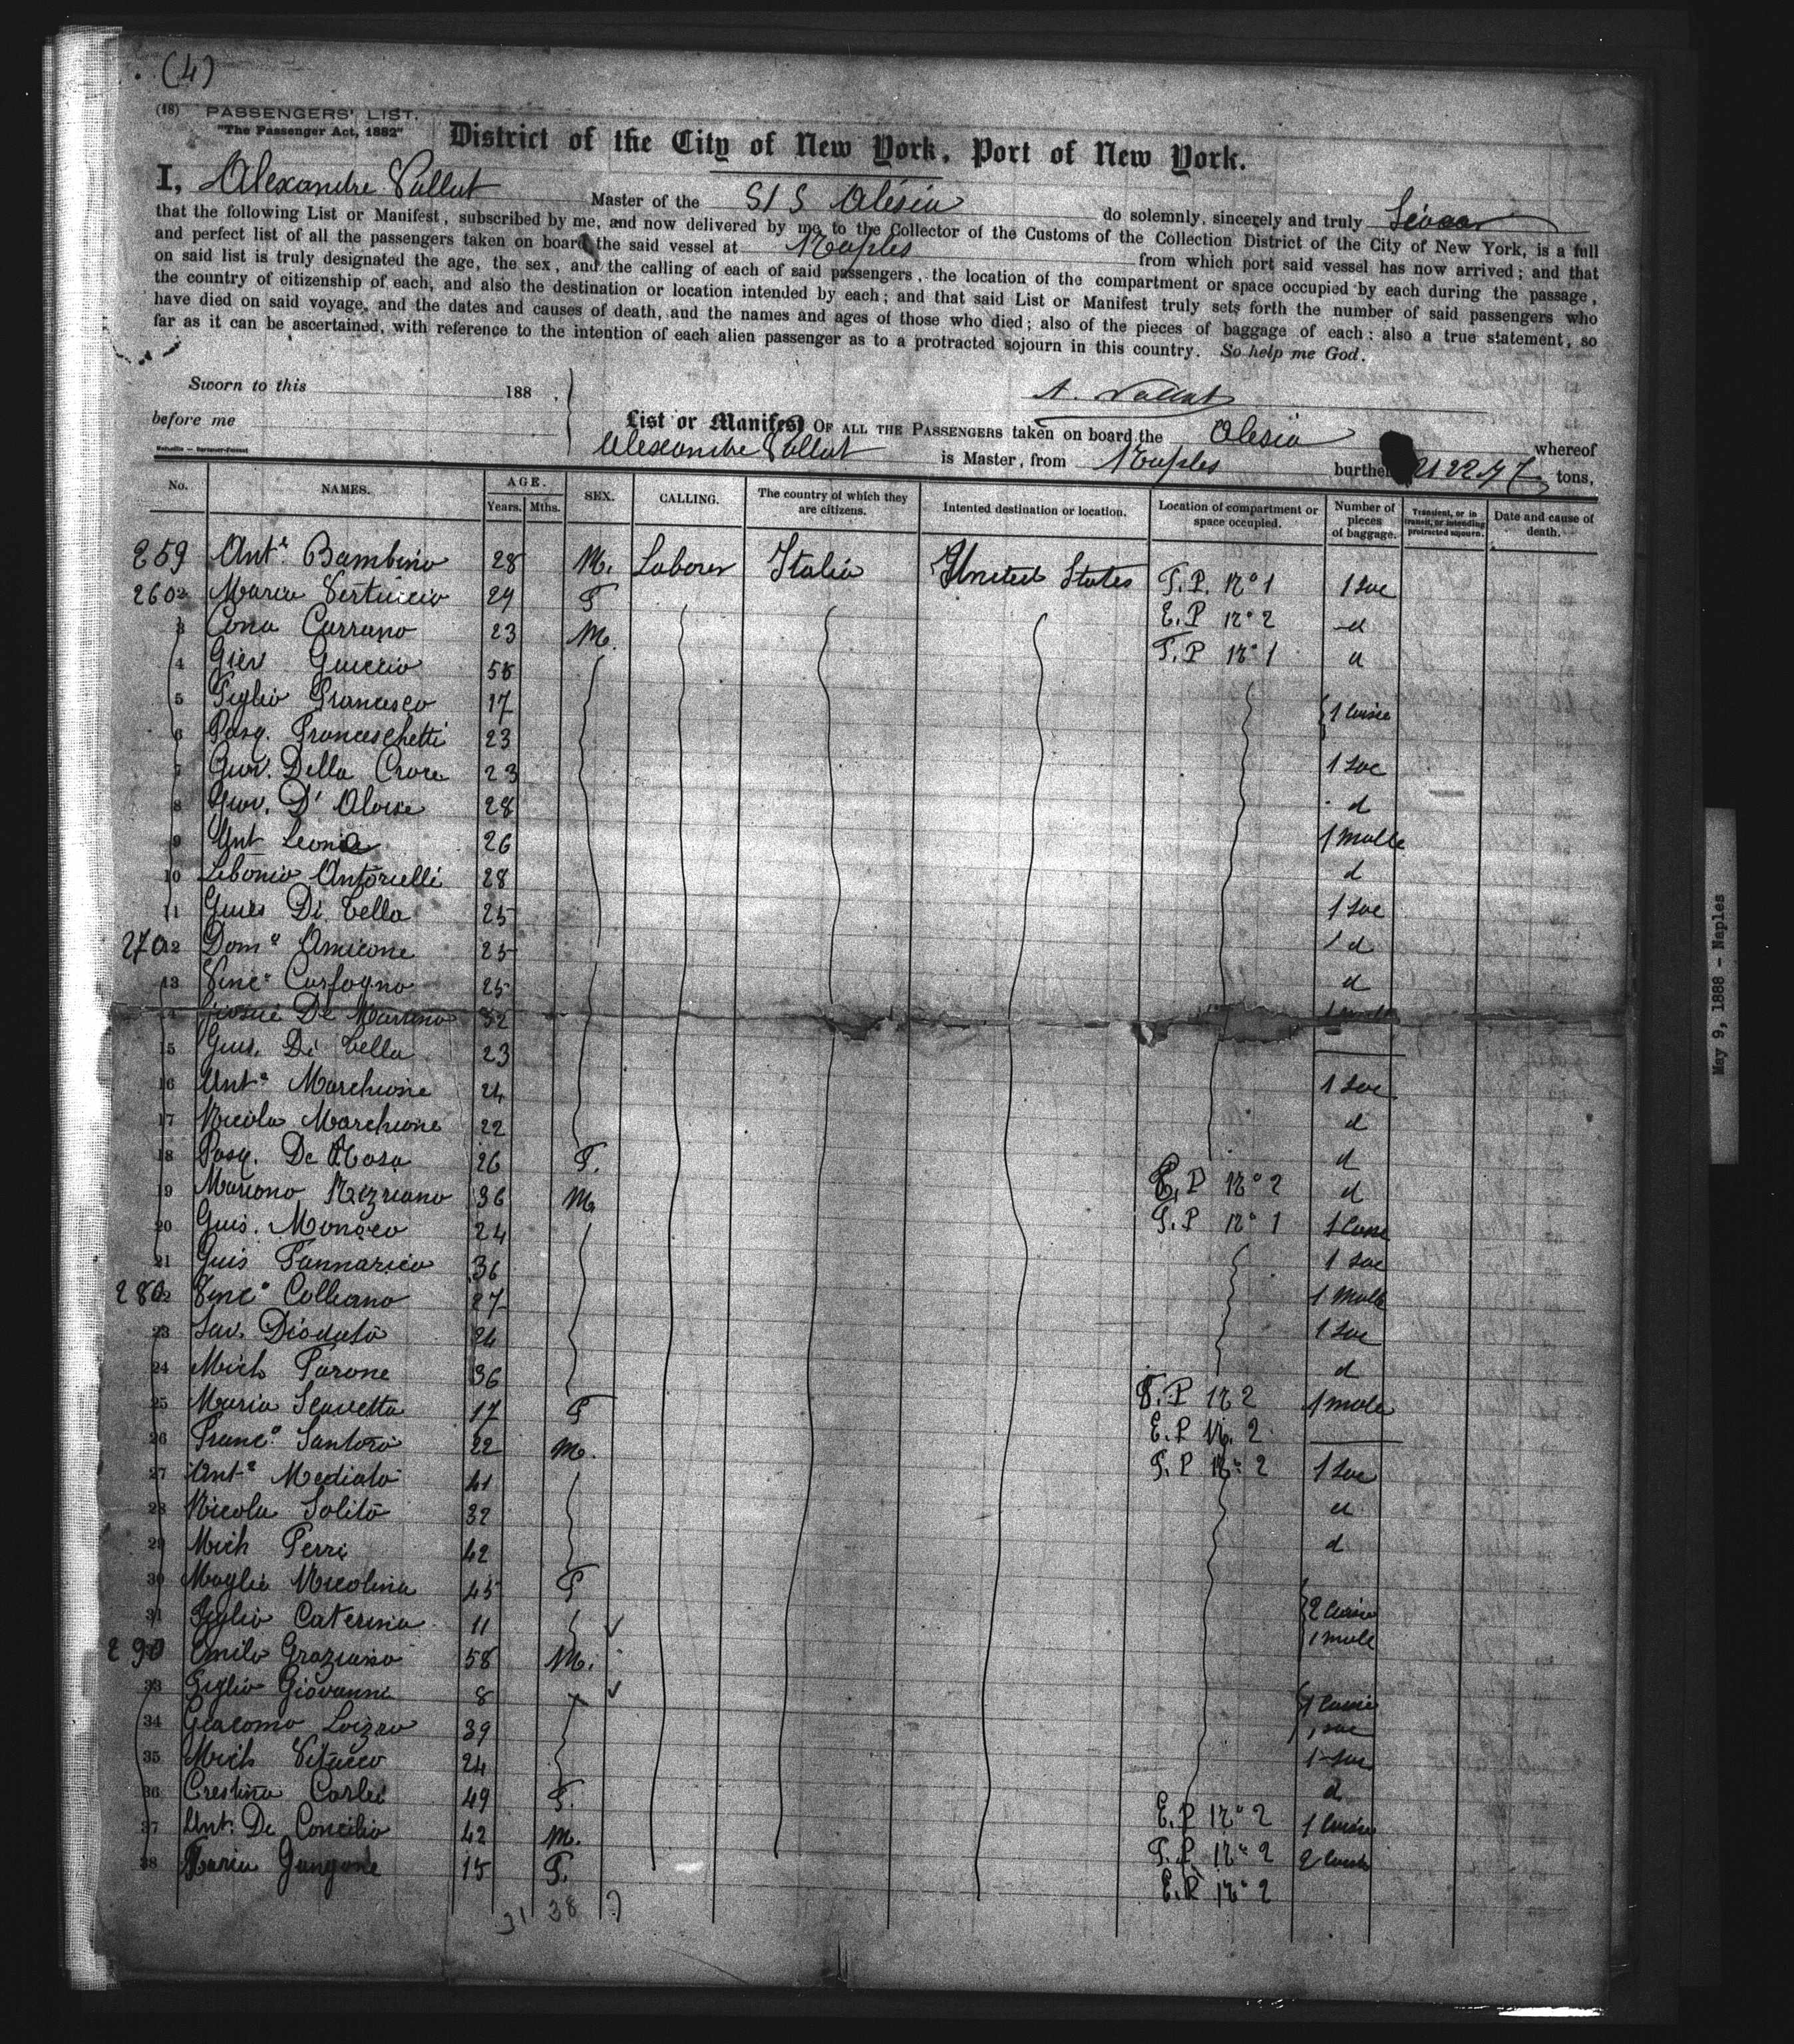 (4)
(18) PASSENGERS' LIST.
"The Passenger Act, 1882"
District of the City of New York, Port of New York.
I, Alexandre Vallat Master of the S/S Alésia do solemnly, sincerely and truly Swear
that the following List or Manifest, subscribed by me, and now delivered by me to the Collector of the Customs of the Collection District of the City of New York, is a full
and perfect list of all the passengers taken on board the said vessel at Naples from which port said vessel has now arrived; and that
on said list is truly designated the age, the sex, and the calling of each of said passengers, the location of the compartment or space occupied by each during the passage,
the country of citizenship of each, and also the destination or location intended by each; and that said List or Manifest truly sets forth the number of said passengers who
have died on said voyage, and the dates and causes of death, and the names and ages of those who died; also of the pieces of baggage of each: also a true statement, so
far as it can be ascertained, with reference to the intention of each alien passenger as to a protracted sojourn in this country. So help me God.
Sworn to this 188 .
A. Vallat
before me
List or Manifest OF ALL THE PASSENGERS taken on board the Alesia whereof
Alexandre Vallat is Master, from Naples burthen tons,
No. NAMES. AGE. Years. Mths. SEX. CALLING. The country of which they are citizens. Intented destination or location. Location of compartment or space occupied. Number of pieces of baggage. Transient, or in transit, or intending protracted sojourn. Date and cause of death.
259 Ant° Bambino 28 M. Laborer Italia United States T.P. N° 1 1 sac
260 2 Maria Vertuccio 29 F E.P N° 2 d
3 Cona Carrano 23 M. T.P N° 1 d
4 58
5 Figlio Francesco 17
6 Pasq. Franceschetti 23
7 Giov. Della Croce 23 1 sac
8 Giov. D'Aloise 28 d
9 Ant Leone 26 1 malle
10 Antonelli 28 d
11 Di Cella 25 1 sac
270 12 Dom° Amicone 25 1 d
13 Vinc° Carfogno 25 d
14 Giosué De Marino 32
15 Gius. Di Cella 23
16 Ant° Marchione 24 1 sac
17 Nicola Marchione 22 d
18 Pasq. De Rosa 26 F. d
19 Mariano 36 M. E.P N° 2 d
20 Gius. Monaco 24 T.P N° 1
21 Gius Iannarico 36 1 sac
280 22 Vinc° Colleano 27 1 malle
23 Sav. Diodato 24 1 sac
24 Mich Parone 36 d
25 Maria Scavetta 17 F 1 malle
26 Franc° Santoro 22 M. E.P N. 2
27 Ant° Mediato 41 T.P N° 2 1 sac
28 Nicola Solito 32 d
29 Mich Perri 42 d
30 Moglie Nicolina 45 F
31 Figlia Caterina 11 2 caisse
290 Emilo Graziano 58 M. 1 malle
33 Figlio Giovanni 8 1 caisse
34 Giacomo Loizzo 39 1 sac
35 Mich Vitucco 24 1 sac
36 Crestina Carlei 49 F. d
37 Ant. De Concilio 42 M. E.P N° 2 1 caisse
38 Maria Gangone 15 F. T.P N° 2 2
E.P N° 2
31 38
May 9, 1888 - Naples